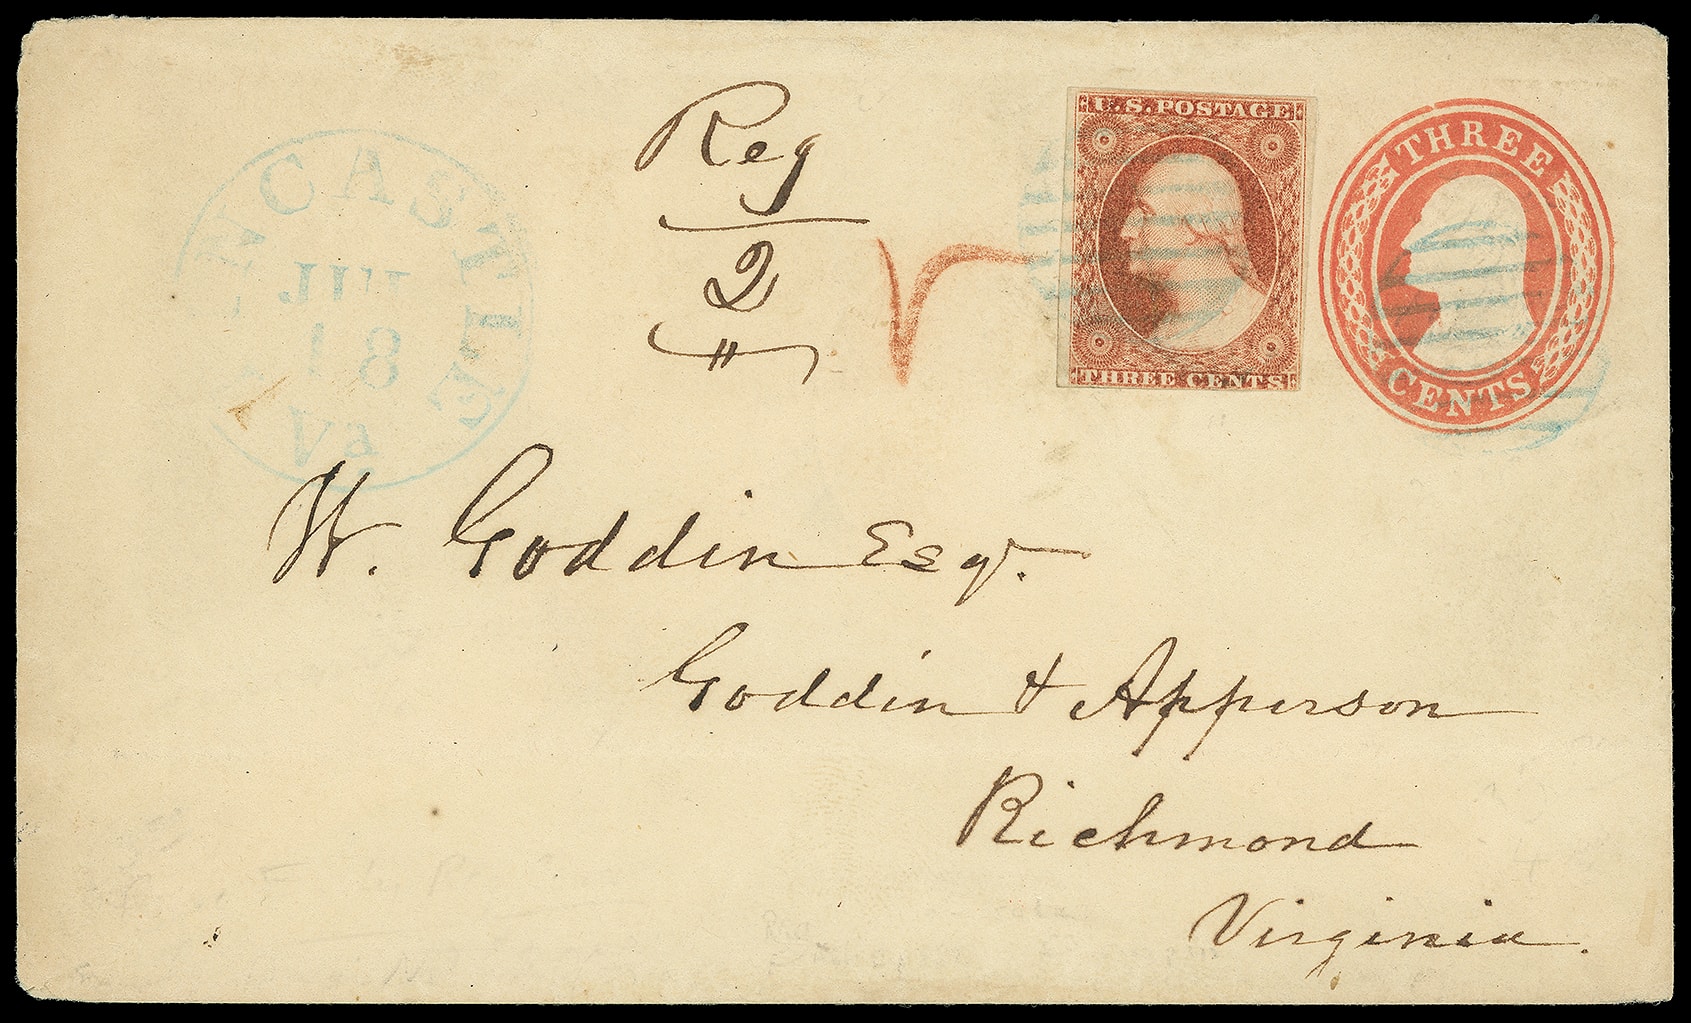 Reg
2
U.S. POSTAGE
THREE CENTS
THREE
CENTS
CASTLE
JUL
18
W. Goddin Esqr.
Goddin & Apperson
Richmond
Virginia.